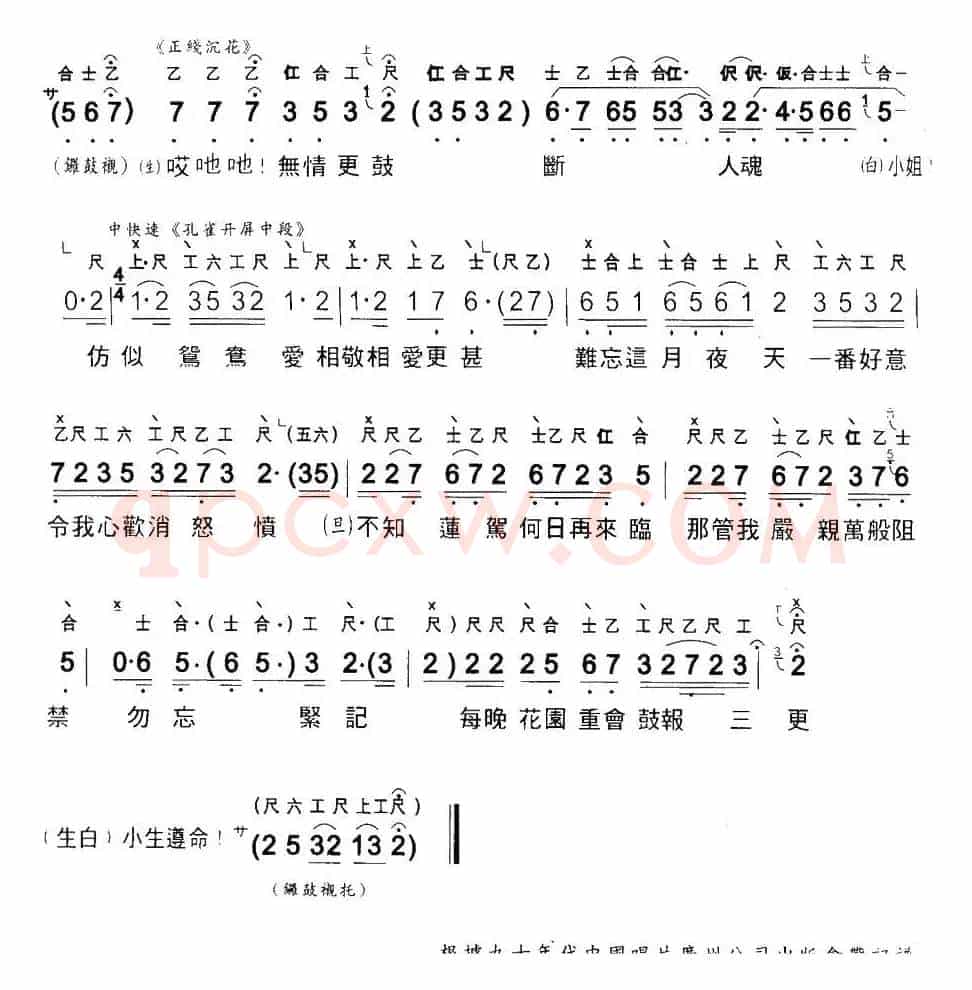 《正綫沉花》 上
合士乙 乙乙乙 仜合工尺 仜合工尺 士乙士合合仜· 伬伬·仮·合士士 上 合一
サ(5 6 7) 7 7 7 3 5 3 1 2 (3 5 3 2) 6·7 65 53 3 22 2·4·566 1 5-
(鑼鼓襯) (生) 哎吔吔！無情更鼓 斷 人魂 (白)小姐！
中快速《孔雀开屏中段》
尺 上·尺 工六工尺 上·尺 上·尺 上乙 士·(尺乙) 士合上 士合士上 尺 工六工尺
0·2 4/4 1·2 3532 1·2 | 1·2 17 6·(27) | 651 6561 2 3532 |
仿似鴛鴦愛相敬相愛更甚 難忘這月夜天一番好意
乙尺工六 工尺乙工 尺·(五六) 尺尺乙 士乙尺 士乙尺仜 合 尺尺乙 士乙尺 仜乙士
7235 3273 2·(35) | 227 672 6723 5 | 227 672 37 5 6
令我心歡消怒憤 (旦)不知蓮駕何日再來臨 那管我嚴親萬般阻
合 士 合·(士合·)工 尺·(工 尺)尺尺 尺合 士乙 工尺乙尺工 尺
5 | 0·6 5·(6 5·)3 2·(3 | 2)22 25 67 32723 | 3 2
禁 勿忘 緊記 每晚花園重會鼓報三更
(尺六工尺上工尺)
(生白)小生遵命！サ(2 5 32 13 2)
(鑼鼓襯托)